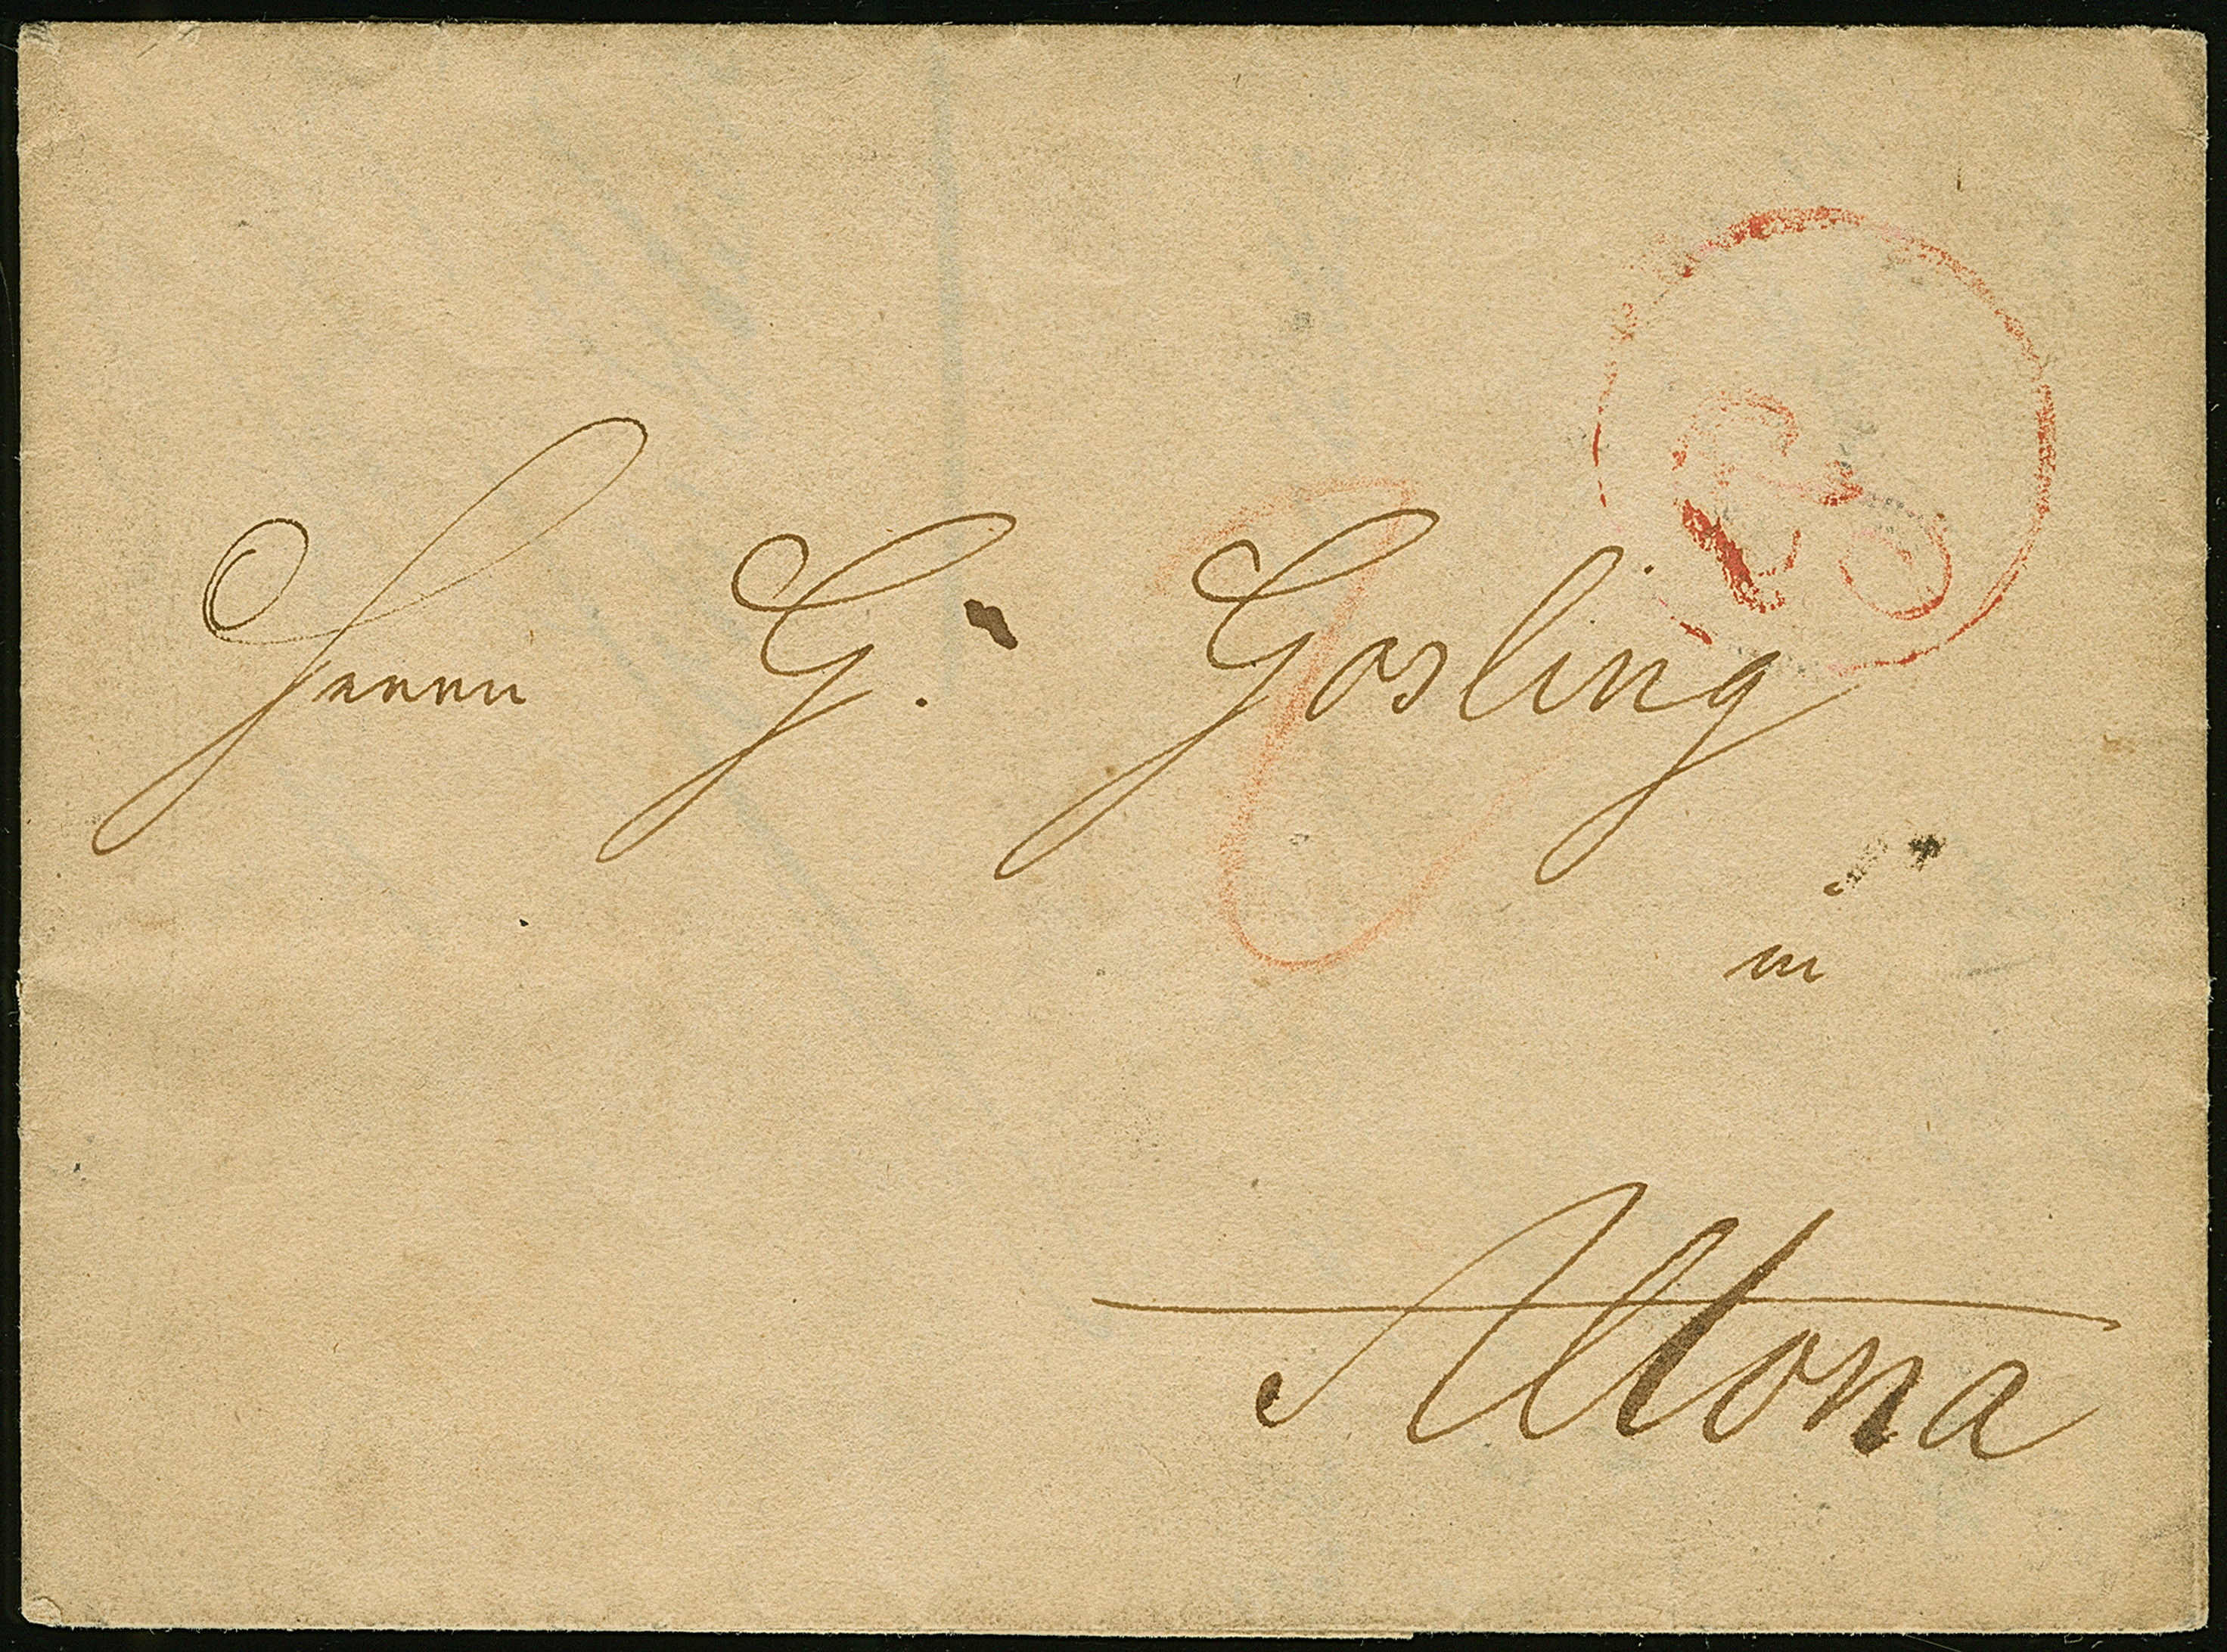 Herrn G. Gosling
in
Altona